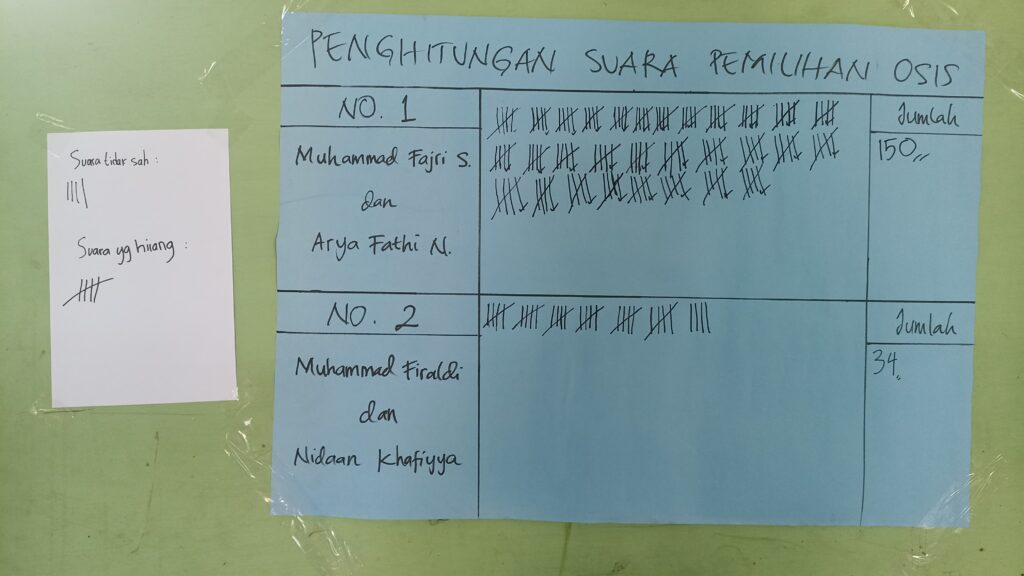 Suara tidak sah :
Suara yg hilang :
PENGHITUNGAN SUARA PEMILIHAN OSIS
NO. 1
Jumlah
Muhammad Fajri S.
dan
Arya Fathi N.
150,,
NO. 2
Jumlah
Muhammad Firaldi
dan
Nidaan Khafiyya
34,,